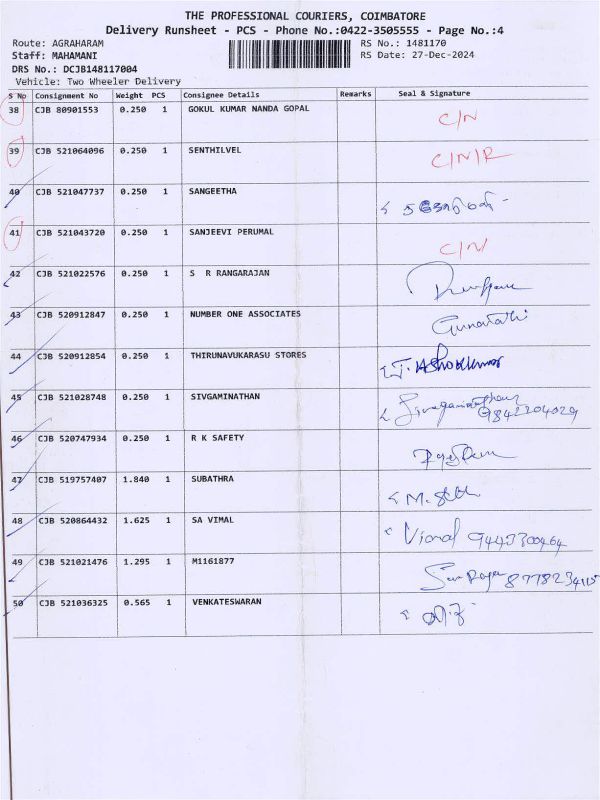 THE PROFESSIONAL COURIERS, COIMBATORE
Delivery Runsheet - PCS - Phone No.:0422-3505555 - Page No.:4
Route: AGRAHARAM RS No.: 1481170
Staff: MAHAMANI RS Date: 27-Dec-2024
DRS No.: DCJB148117004
Vehicle: Two Wheeler Delivery
S No Consignment No Weight PCS Consignee Details Remarks Seal & Signature
38 CJB 80901553 0.250 1 GOKUL KUMAR NANDA GOPAL C/N
39 CJB 521064096 0.250 1 SENTHILVEL C/N/R
40 CJB 521047737 0.250 1 SANGEETHA
41 CJB 521043720 0.250 1 SANJEEVI PERUMAL C/N/
42 CJB 521022576 0.250 1 S R RANGARAJAN
43 CJB 520912847 0.250 1 NUMBER ONE ASSOCIATES Gunavathi
44 CJB 520912854 0.250 1 THIRUNAVUKARASU STORES J. Ashokkumar
45 CJB 521028748 0.250 1 SIVGAMINATHAN 9842204029
46 CJB 520747934 0.250 1 R K SAFETY
47 CJB 519757407 1.840 1 SUBATHRA
48 CJB 520864432 1.625 1 SA VIMAL Vimal 9443300464
49 CJB 521021476 1.295 1 M1161877
50 CJB 521036325 0.565 1 VENKATESWARAN